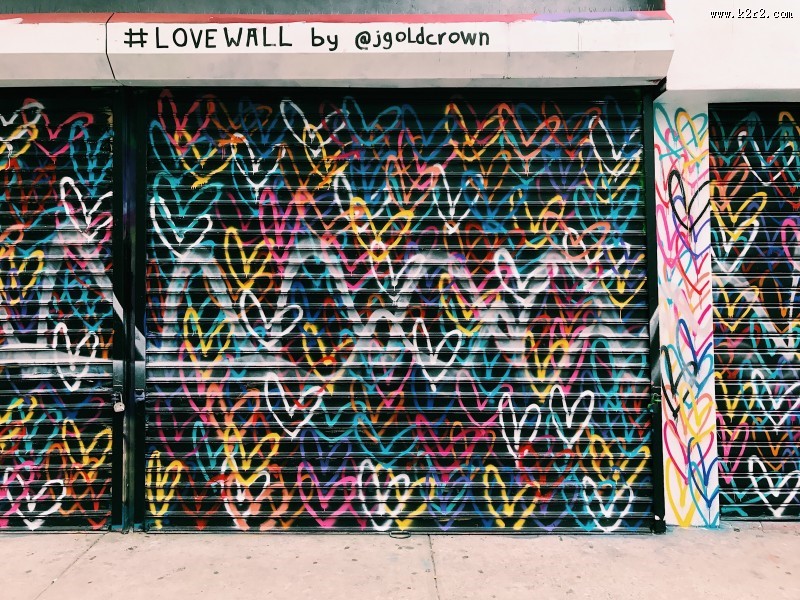 www.k2r2.com
#LOVEWALL by @jgoldcrown